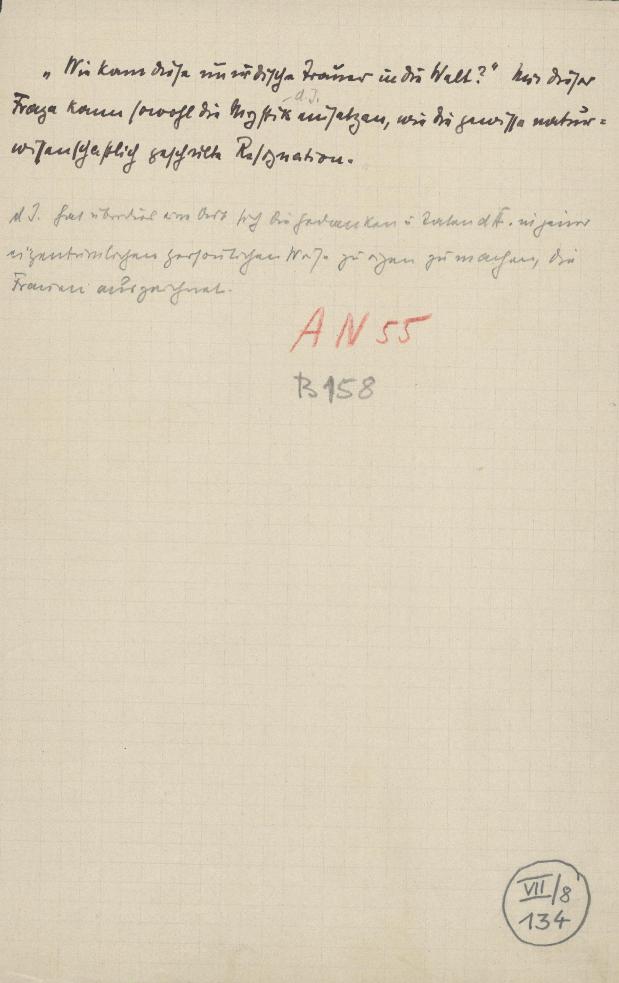 „Wie kam diese unirdische Trauer in die Welt?“ Mit dieser
d. J.
Frage kann sowohl die Mystik einsetzen, wie die gewisse natur=
wissenschaftlich geschulte Resignation.
d J. hat überdies eine Art sich die Gedanken u Taten d A. in jener
eigentümlichen persönlichen Weise zu eigen zu machen, die
Frauen auszeichnet.
AN 55
B 158
VII/8
134